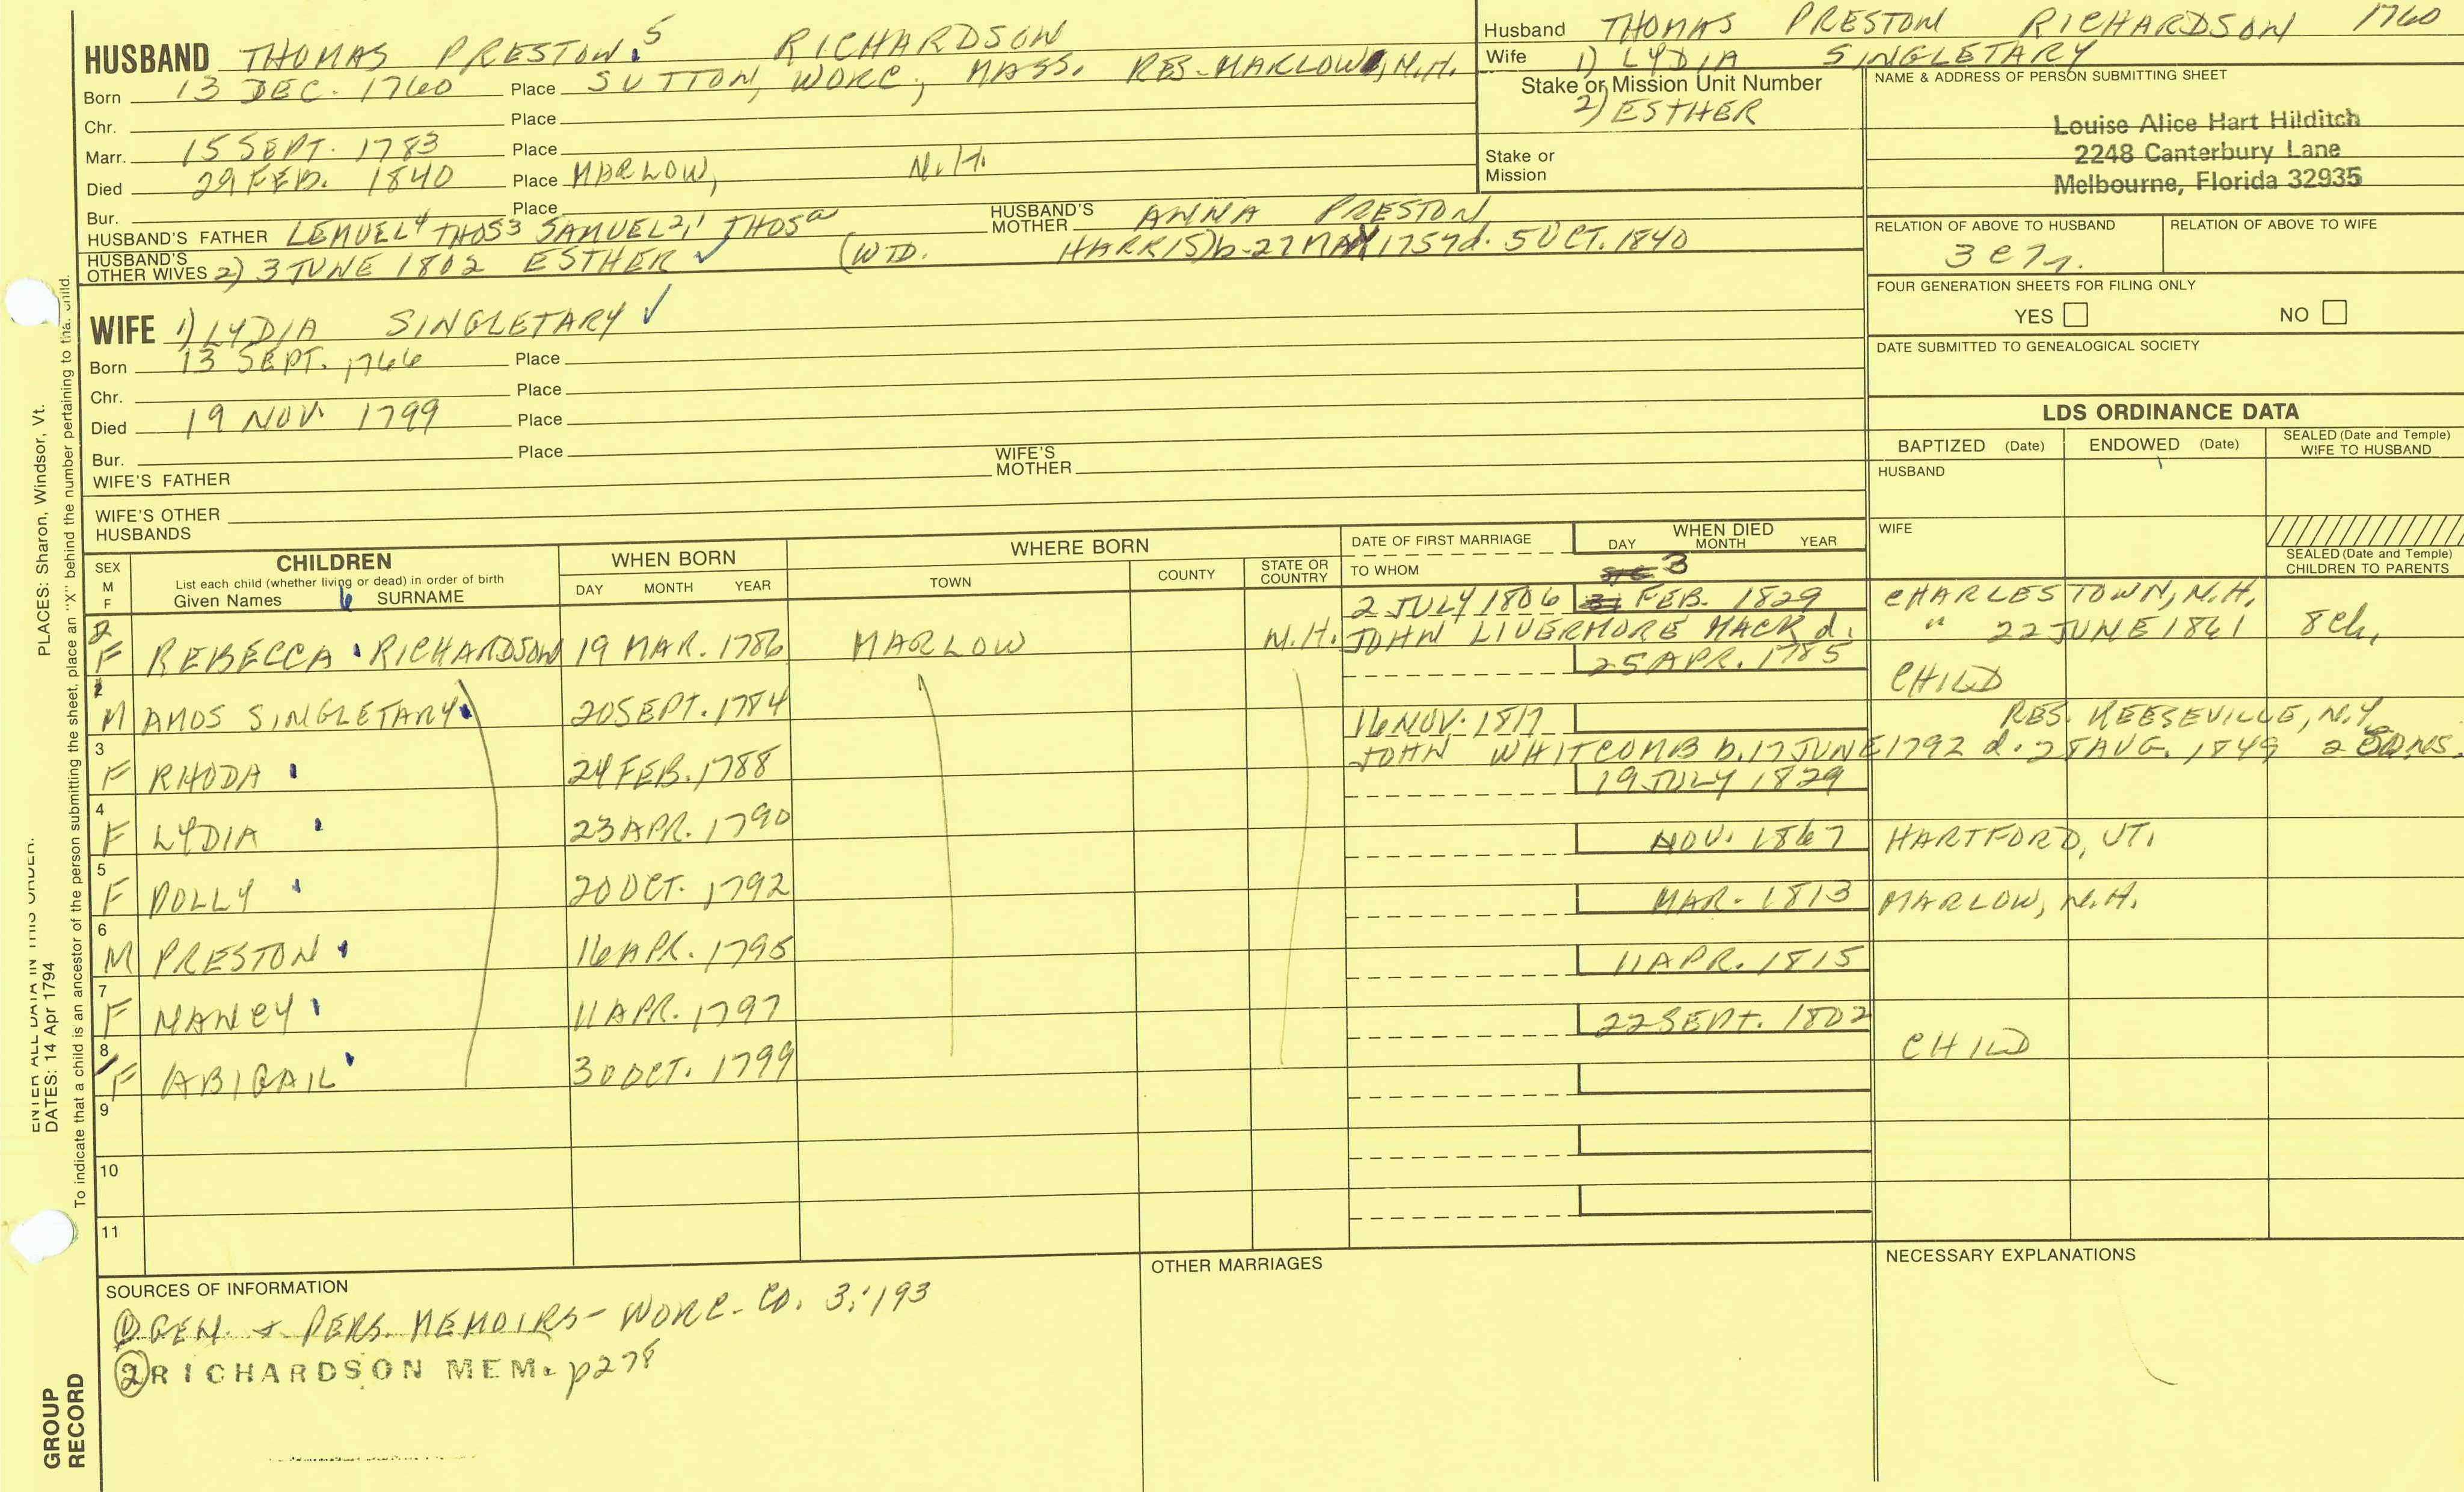 HUSBAND THOMAS PRESTON 5 RICHARDSON
Born 13 DEC. 1760 Place SUTTON, WORC, MASS. RES-MARLOW, N.H.
Chr. Place
Marr. 15 SEPT. 1783 Place
Died 29 FEB. 1840 Place MARLOW, N.H.
Bur. Place
HUSBAND'S FATHER LEMUEL4 THOS3 SAMUEL2,1 THOSa HUSBAND'S MOTHER ANNA PRESTON
HUSBAND'S OTHER WIVES 2) 3 JUNE 1802 ESTHER ✓ (WID. HARRIS) b-27 MAY 1757 d. 5 OCT. 1840
WIFE 1) LYDIA SINGLETARY ✓
Born 13 SEPT. 1766 Place
Chr. Place
Died 19 NOV. 1799 Place
Bur. Place
WIFE'S FATHER WIFE'S MOTHER
WIFE'S OTHER HUSBANDS
Husband THOMAS PRESTON RICHARDSON 1760
Wife 1) LYDIA SINGLETARY
Stake or Mission Unit Number
2) ESTHER
Stake or Mission
NAME & ADDRESS OF PERSON SUBMITTING SHEET
Louise Alice Hart Hilditch
2248 Canterbury Lane
Melbourne, Florida 32935
RELATION OF ABOVE TO HUSBAND RELATION OF ABOVE TO WIFE
FOUR GENERATION SHEETS FOR FILING ONLY
YES NO
DATE SUBMITTED TO GENEALOGICAL SOCIETY
LDS ORDINANCE DATA
BAPTIZED (Date) ENDOWED (Date) SEALED (Date and Temple) WIFE TO HUSBAND
HUSBAND
WIFE
SEALED (Date and Temple) CHILDREN TO PARENTS
SEX M F CHILDREN WHEN BORN WHERE BORN DATE OF FIRST MARRIAGE WHEN DIED
List each child (whether living or dead) in order of birth DAY MONTH YEAR TOWN COUNTY STATE OR COUNTRY TO WHOM DAY MONTH YEAR
Given Names 6 SURNAME
2 JULY 1806 3 FEB. 1829 CHARLESTOWN, N.H.
2 F REBECCA RICHARDSON 19 MAR. 1786 MARLOW N.H. JOHN LIVERMORE MACK d. " 22 JUNE 1861 8 ch.
25 APR. 1785 CHILD
1 M AMOS SINGLETARY 20 SEPT. 1784
16 NOV. 1817 RES. KEESEVILLE, N.Y.
3 F RHODA 24 FEB. 1788 JOHN WHITCOMB b. 17 JUNE 1792 d. 28 AUG. 1849 2 SONS.
19 JULY 1829
4 F LYDIA 23 APR. 1790
NOV. 1867 HARTFORD, VT.
5 F DOLLY 20 OCT. 1792
MAR. 1813 MARLOW, N.H.
6 M PRESTON 16 APR. 1795
11 APR. 1815
7 F NANCY 11 APR. 1797
22 SEPT. 1802 CHILD
8 F ABIGAIL 30 OCT. 1799
9
10
11
SOURCES OF INFORMATION
1 GEN. & PERS. MEMOIRS- WORC. CO. 3:193
2 RICHARDSON MEM. p278
OTHER MARRIAGES
NECESSARY EXPLANATIONS
PLACES: Sharon, Windsor, Vt.
ENTER ALL DATA IN THIS ORDER:
DATES: 14 Apr 1794
To indicate that a child is an ancestor of the person submitting the sheet, place an "X" behind the number pertaining to that child.
GROUP RECORD